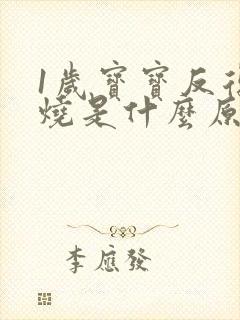 1歲寶寶反復
燒是什麼原
李應發